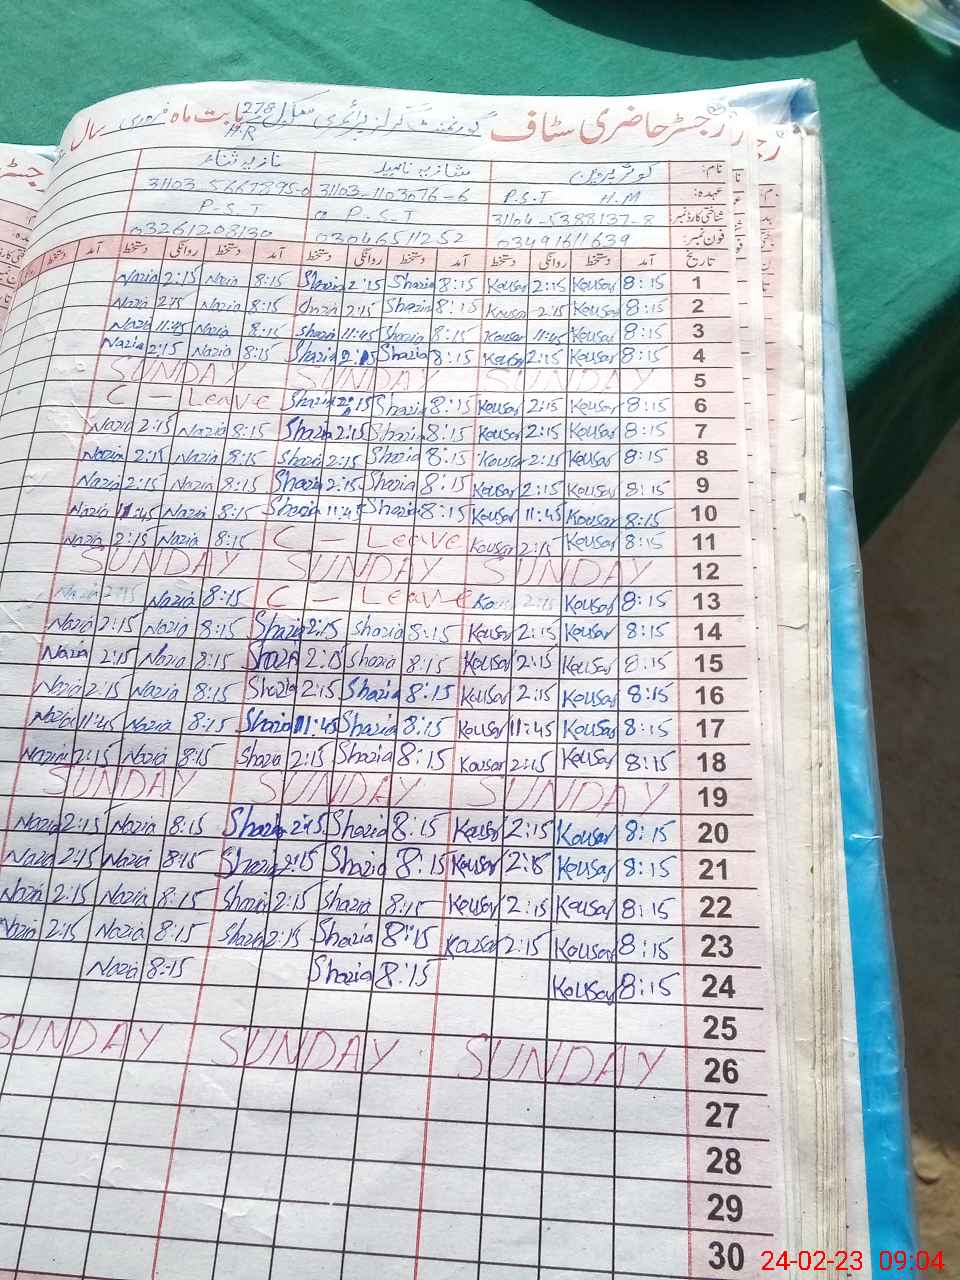 رجسٹر حاضری سٹاف گورنمنٹ گرلز پرائمری سکول 278 بابت ماہ فروری سال
H R
نام: کوثر پروین شازیہ نازیہ
عہدہ: H.M P.S.T 31103-1103076-6 31103-5667895-0
شناختی کارڈ نمبر: 31104-5388137-8 P.S.T P.S.T
فون نمبر: 03491611639 03046511252 03261208130
تاریخ آمد دستخط روانگی دستخط آمد دستخط روانگی دستخط آمد دستخط روانگی دستخط آمد دستخط
1 8:15 Kousar 2:15 Kousar 8:15 Shazia 2:15 Shazia 8:15 Nazia 2:15 Nazia
2 8:15 Kousar 2:15 Kousar 8:15 Shazia 2:15 Shazia 8:15 Nazia 2:15 Nazia
3 8:15 Kousar 11:45 Kousar 8:15 Shazia 11:45 Shazia 8:15 Nazia 11:45 Nazia
4 8:15 Kousar 2:15 Kousar 8:15 Shazia 2:15 Shazia 8:15 Nazia 2:15 Nazia
5 SUNDAY SUNDAY SUNDAY
6 8:15 Kousar 2:15 Kousar 8:15 Shazia 2:15 Shazia C - Leave
7 8:15 Kousar 2:15 Kousar 8:15 Shazia 2:15 Shazia 8:15 Nazia 2:15 Nazia
8 8:15 Kousar 2:15 Kousar 8:15 Shazia 2:15 Shazia 8:15 Nazia 2:15 Nazia
9 8:15 Kousar 2:15 Kousar 8:15 Shazia 2:15 Shazia 8:15 Nazia 2:15 Nazia
10 8:15 Kousar 11:45 Kousar 8:15 Shazia 11:45 Shazia 8:15 Nazia 11:45 Nazia
11 8:15 Kousar 2:15 Kousar C - Leave 8:15 Nazia 2:15 Nazia
12 SUNDAY SUNDAY SUNDAY
13 8:15 Kousar 2:15 Kou C - Leave 8:15 Nazia 2:15 Nazia
14 8:15 Kousar 2:15 Kousar 8:15 Shazia 2:15 Shazia 8:15 Nazia 2:15 Nazia
15 8:15 Kousar 2:15 Kousar 8:15 Shazia 2:15 Shazia 8:15 Nazia 2:15 Nazia
16 8:15 Kousar 2:15 Kousar 8:15 Shazia 2:15 Shazia 8:15 Nazia 2:15 Nazia
17 8:15 Kousar 11:45 Kousar 8:15 Shazia 11:45 Shazia 8:15 Nazia 11:45 Nazia
18 8:15 Kousar 2:15 Kousar 8:15 Shazia 2:15 Shazia 8:15 Nazia 2:15 Nazia
19 SUNDAY SUNDAY SUNDAY
20 8:15 Kousar 2:15 Kousar 8:15 Shazia 2:15 Shazia 8:15 Nazia 2:15 Nazia
21 8:15 Kousar 2:15 Kousar 8:15 Shazia 2:15 Shazia 8:15 Nazia 2:15 Nazia
22 8:15 Kousar 2:15 Kousar 8:15 Shazia 2:15 Shazia 8:15 Nazia 2:15 Nazia
23 8:15 Kousar 2:15 Kousar 8:15 Shazia 2:15 Shazia 8:15 Nazia 2:15 Nazia
24 8:15 Kousar 8:15 Shazia 8:15 Nazia
25
26 SUNDAY SUNDAY SUNDAY
27
28
29
30
24-02-23 09:04